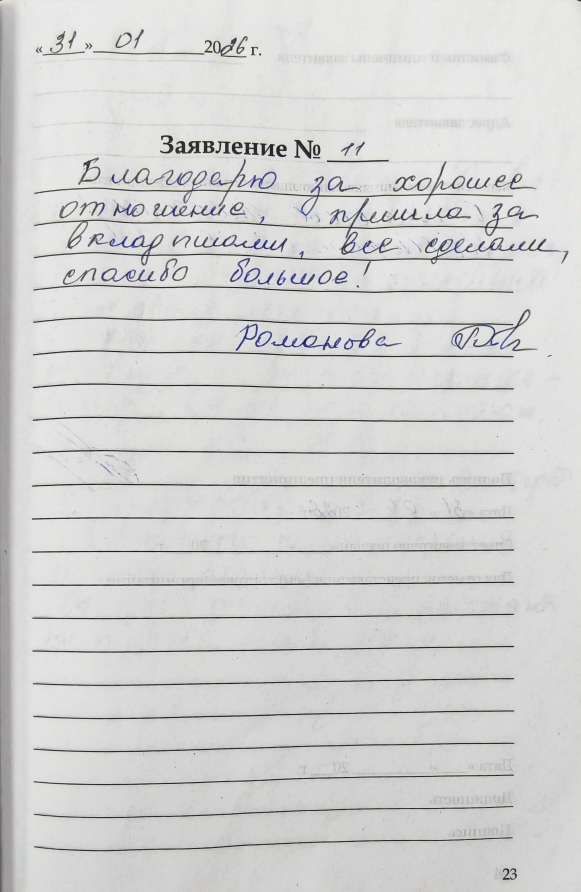 «31» 01 2026 г.
Заявление № 11
Благодарю за хорошее
отношение, пришла за
вкладышами, все сделали,
спасибо большое!
Романова
23